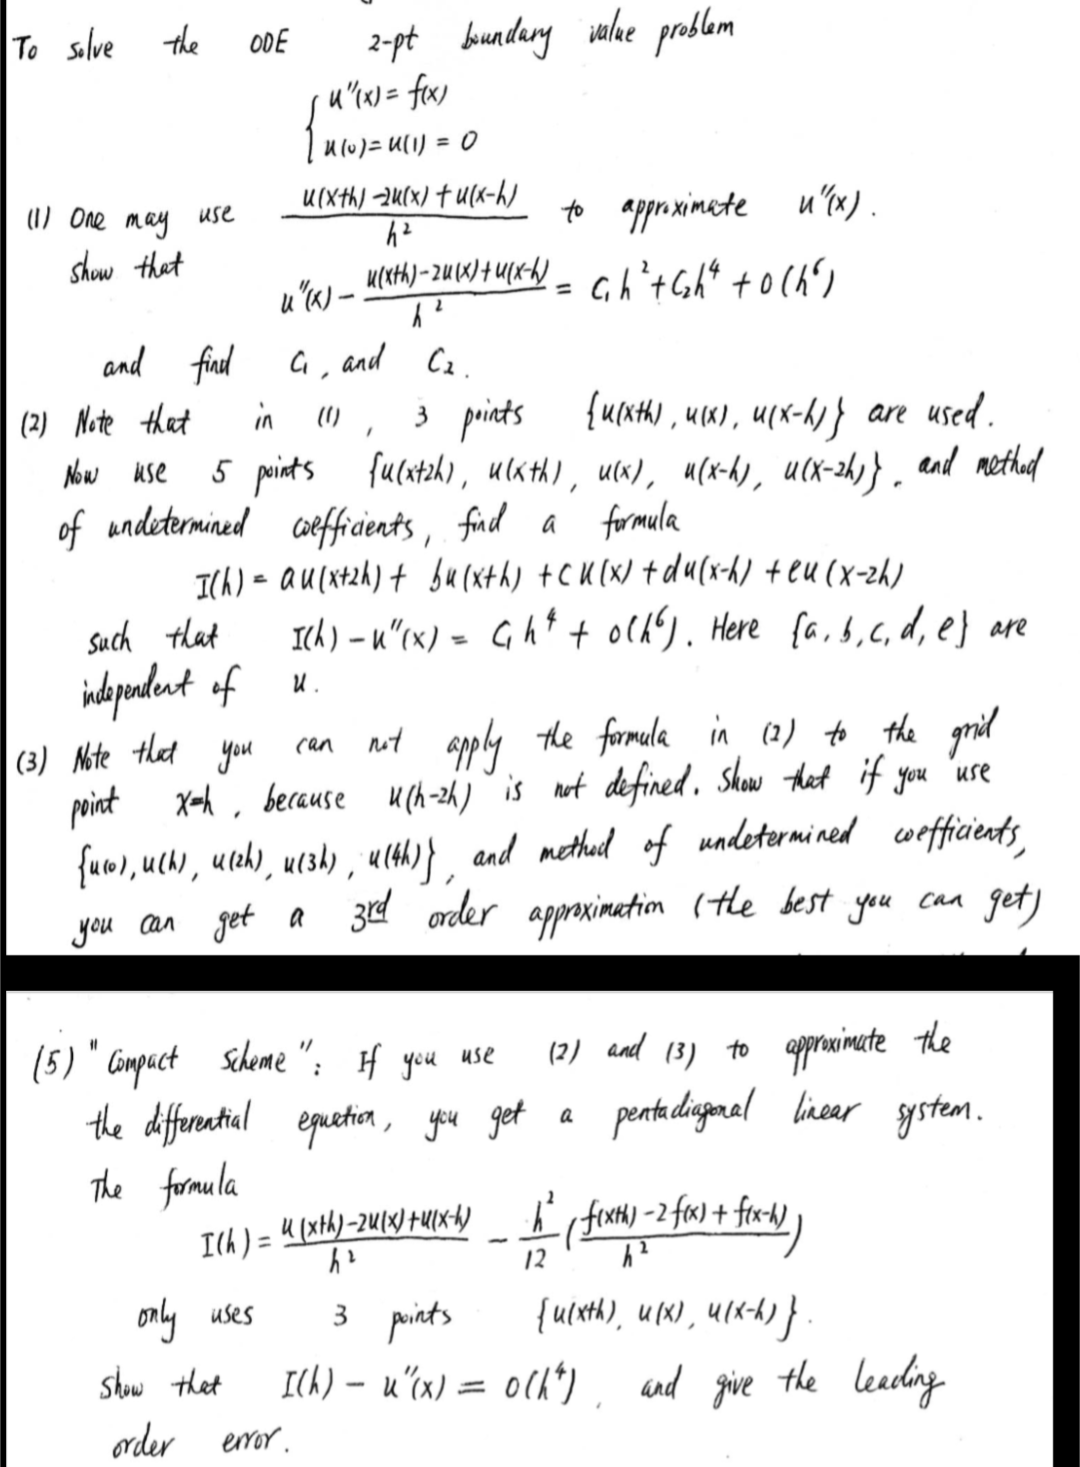 To solve the ODE 2-pt boundary value problem
{ u''(x) = f(x)
u(0) = u(1) = 0
(1) One may use (u(x+h) - 2u(x) + u(x-h)) / h² to approximate u''(x).
show that
u''(x) - (u(x+h) - 2u(x) + u(x-h)) / h² = C₁h² + C₂h⁴ + O(h⁶)
and find C₁, and C₂.
(2) Note that in (1), 3 points {u(x+h), u(x), u(x-h)} are used.
Now use 5 points {u(x+2h), u(x+h), u(x), u(x-h), u(x-2h)}. and method
of undetermined coefficients, find a formula
I(h) = au(x+2h) + bu(x+h) + cu(x) + du(x-h) + eu(x-2h)
such that I(h) - u''(x) = C₁h⁴ + O(h⁶). Here {a, b, c, d, e} are
independent of u.
(3) Note that you can not apply the formula in (2) to the grid
point x=h, because u(h-2h) is not defined. Show that if you use
{u(0), u(h), u(2h), u(3h), u(4h)}, and method of undetermined coefficients,
you can get a 3rd order approximation (the best you can get)
(5) "Compact Scheme": If you use (2) and (3) to approximate the
the differential equation, you get a pentadiagonal linear system.
The formula
I(h) = (u(x+h) - 2u(x) + u(x-h)) / h² - h²/12 ((f(x+h) - 2f(x) + f(x-h)) / h²)
only uses 3 points {u(x+h), u(x), u(x-h)}.
Show that I(h) - u''(x) = O(h⁴), and give the leading
order error.